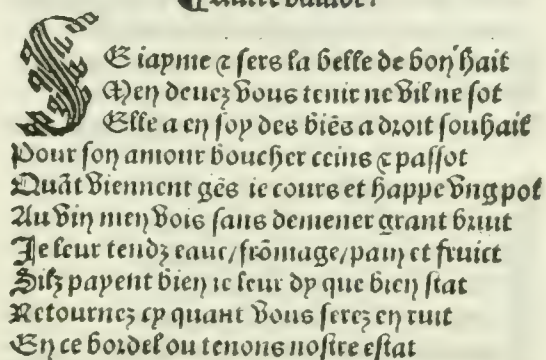 Autre balade.
SE iayme ⁊ sers la belle de bon hait
Men deuez vous tenir ne vil ne sot
Elle a en soy des biēs a droit souhait
Pour son amour boucher ceins ⁊ passot
Quāt viennent gēs ie cours et happe vng pot
Au vin men vois sans demener grant bruut
Je leur tendz eaue/frōmage/pain et fruict
Silz payent bien ie leur dy que bien stat
Retournez cy quant vous serez en ruit
En ce bordel ou tenons nostre estat